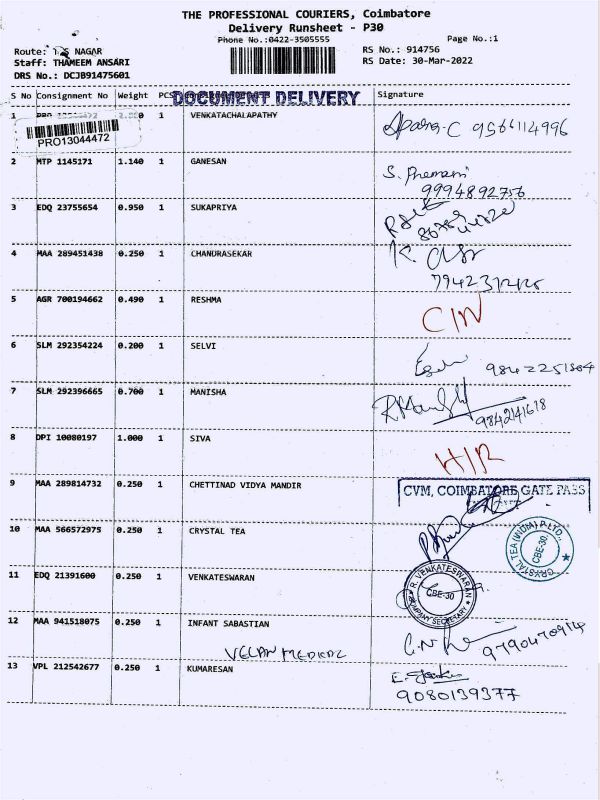 THE PROFESSIONAL COURIERS, Coimbatore
Delivery Runsheet - P30
Phone No.:0422-3505555
Page No.:1
Route: T S NAGAR
RS No.: 914756
Staff: THAMEEM ANSARI
RS Date: 30-Mar-2022
DRS No.: DCJB91475601
S No Consignment No Weight PCS DOCUMENT DELIVERY Signature
1 PRO 13044472 1 VENKATACHALAPATHY 9566114996
PRO13044472
2 MTP 1145171 1.140 1 GANESAN S. Premani
9994892756
3 EDQ 23755654 0.950 1 SUKAPRIYA
4 MAA 289451438 0.250 1 CHANDRASEKAR
5 AGR 700194662 0.490 1 RESHMA
6 SLM 292354224 0.200 1 SELVI
7 SLM 292396665 0.700 1 MANISHA
9842141618
8 DPI 10080197 1.000 1 SIVA
9 MAA 289814732 0.250 1 CHETTINAD VIDYA MANDIR CVM, COIMBATORE GATE PASS
10 MAA 566572975 0.250 1 CRYSTAL TEA CRYSTAL TEA (VIDM) P.LTD., CBE-30
11 EDQ 21391600 0.250 1 VENKATESWARAN R. VENKATESWARAN CBE-30 COMPANY SECRETARY
12 MAA 941518075 0.250 1 INFANT SABASTIAN 9790470914
VELAN MEDICAL
13 VPL 212542677 0.250 1 KUMARESAN
9080139377